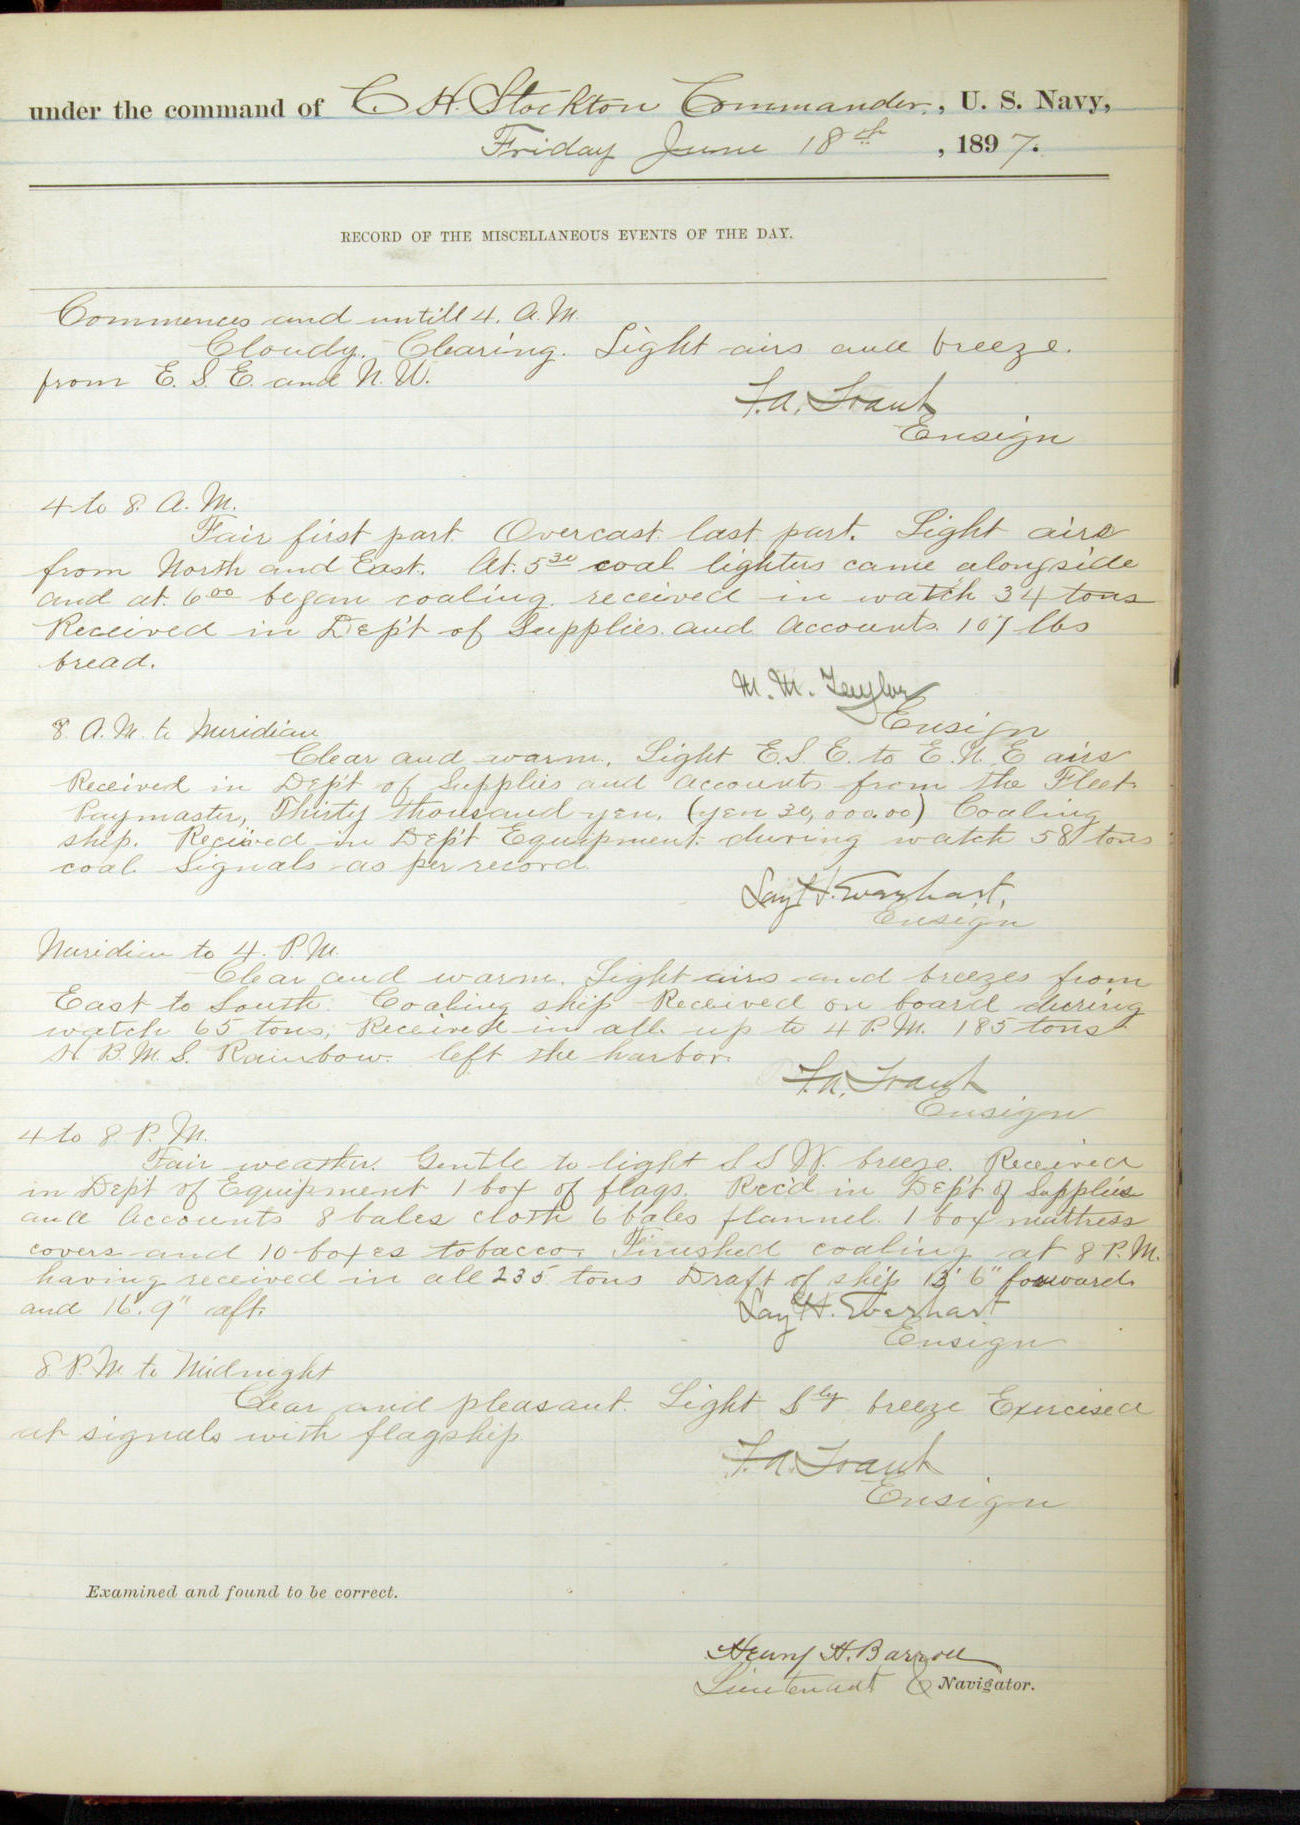 under the command of C. H. Stockton Commander, U. S. Navy,
Friday June 18th, 1897.
RECORD OF THE MISCELLANEOUS EVENTS OF THE DAY.
Commences and untill 4. A.M.
Cloudy. Clearing. Light airs and breeze.
from E. S. E. and N. W.
F. A. Traut
Ensign
4 to 8. A. M.
Fair first part. Overcast last part. Light airs
from North and East. At. 5 30 coal lighters came alongside
and at. 6 00 began coaling. received in watch 34 tons
Received in Dep't of Supplies. and Accounts. 107 lbs
bread.
M. M. Taylor
Ensign
8. A. M. to Meridian
Clear and warm. Light E. S. E. to E. N. E airs
Received in Dep't of Supplies and Accounts from the Fleet
Paymaster, Thirty thousand yen. (yen 30,000.00) Coaling
ship. Received in Dep't Equipment during watch 58 tons
coal. Signals as per record.
Lay H. Everhart,
Ensign
Meridian to 4. P. M.
Clear and warm. Light airs and breezes from
East to South. Coaling ship Received on board during
watch 65 tons, Received in all. up to 4 P.M. 185 tons.
H. B. M. S. Rainbow. left the harbor.
F. A. Traut
Ensign
4 to 8 P. M.
Fair weather. Gentle to light S S W. breeze. Received
in Dep't of Equipment 1 box of flags. Rec'd in Dep't of Supplies
and Accounts 8 bales cloth 6 bales flannel. 1 box mattress
covers and 10 boxes tobacco. Finished coaling at 8 P. M.
having received in all 235 tons Draft of ship 13' 6" forward
and 16'. 9" aft.
Lay H. Everhart
Ensign
8 P. M. to Midnight
Clear and pleasant. Light Sly breeze Exercised
at signals with flagship.
F. A. Traut
Ensign
Examined and found to be correct.
Henry H. Barroll
Lieutenant & Navigator.